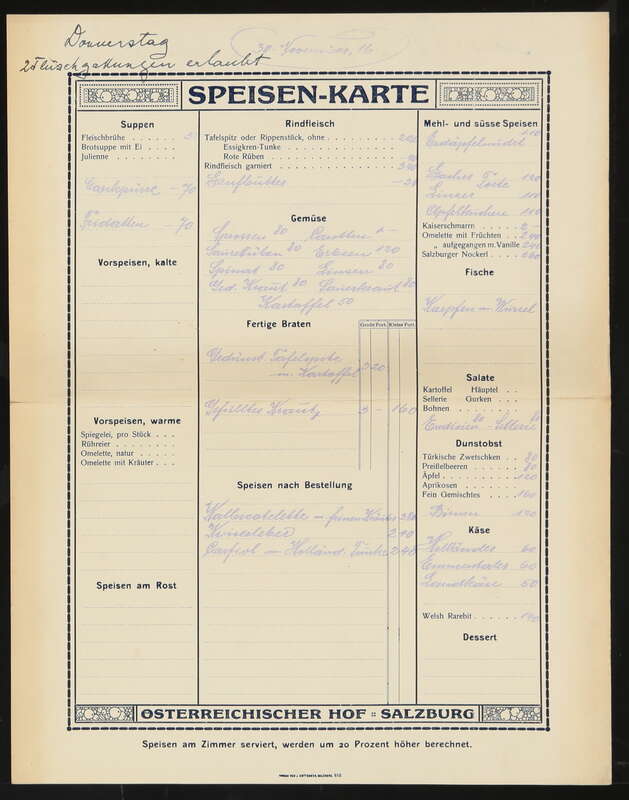 Donnerstag
30. November, 16
2 Fleischgattungen erlaubt
SPEISEN-KARTE
Suppen
Fleischbrühe
Brotsuppe mit Ei
Julienne
– 70
Fridatten – 70
Vorspeisen, kalte
Vorspeisen, warme
Spiegelei, pro Stück
Rühreier
Omelette, natur
Omelette mit Kräuter
Speisen am Rost
Rindfleisch
Tafelspitz oder Rippenstück, ohne
Essigkren-Tunke
Rote Rüben
Rindfleisch garniert
Gemüse
Sprossen 80 Carotten 1–
80 Erbsen 120
Spinat 80 Linsen 80
Ged. Kraut 80 Sauerkraut 80
Kartoffel 50
Fertige Braten
Große Port. Kleine Port.
Gedünst. Tafelspitz
m. Kartoffel 320
Gefülltes Kraut 3– 160
Speisen nach Bestellung
Kalbscotelette
Carfiol – Holländ. Tunke 240
Mehl- und süsse Speisen
Erdäpfelnudel 110
Sacher Torte 120
Linzer 100
Kaiserschmarrn
Omelette mit Früchten
„ aufgegangen m. Vanille
Salzburger Nockerl
Fische
Karpfen – Wurzel
Salate
Kartoffel Häuptel
Sellerie Gurken
Bohnen
Endivien 80 – Sellerie 80
Dunstobst
Türkische Zwetschken 80
Preißelbeeren 80
Äpfel 120
Aprikosen
Fein Gemischtes 160
Birnen 120
Käse
Holländer 60
Emmentaler 60
50
Welsh Rarebit
Dessert
ÖSTERREICHISCHER HOF :: SALZBURG
Speisen am Zimmer serviert, werden um 20 Prozent höher berechnet.